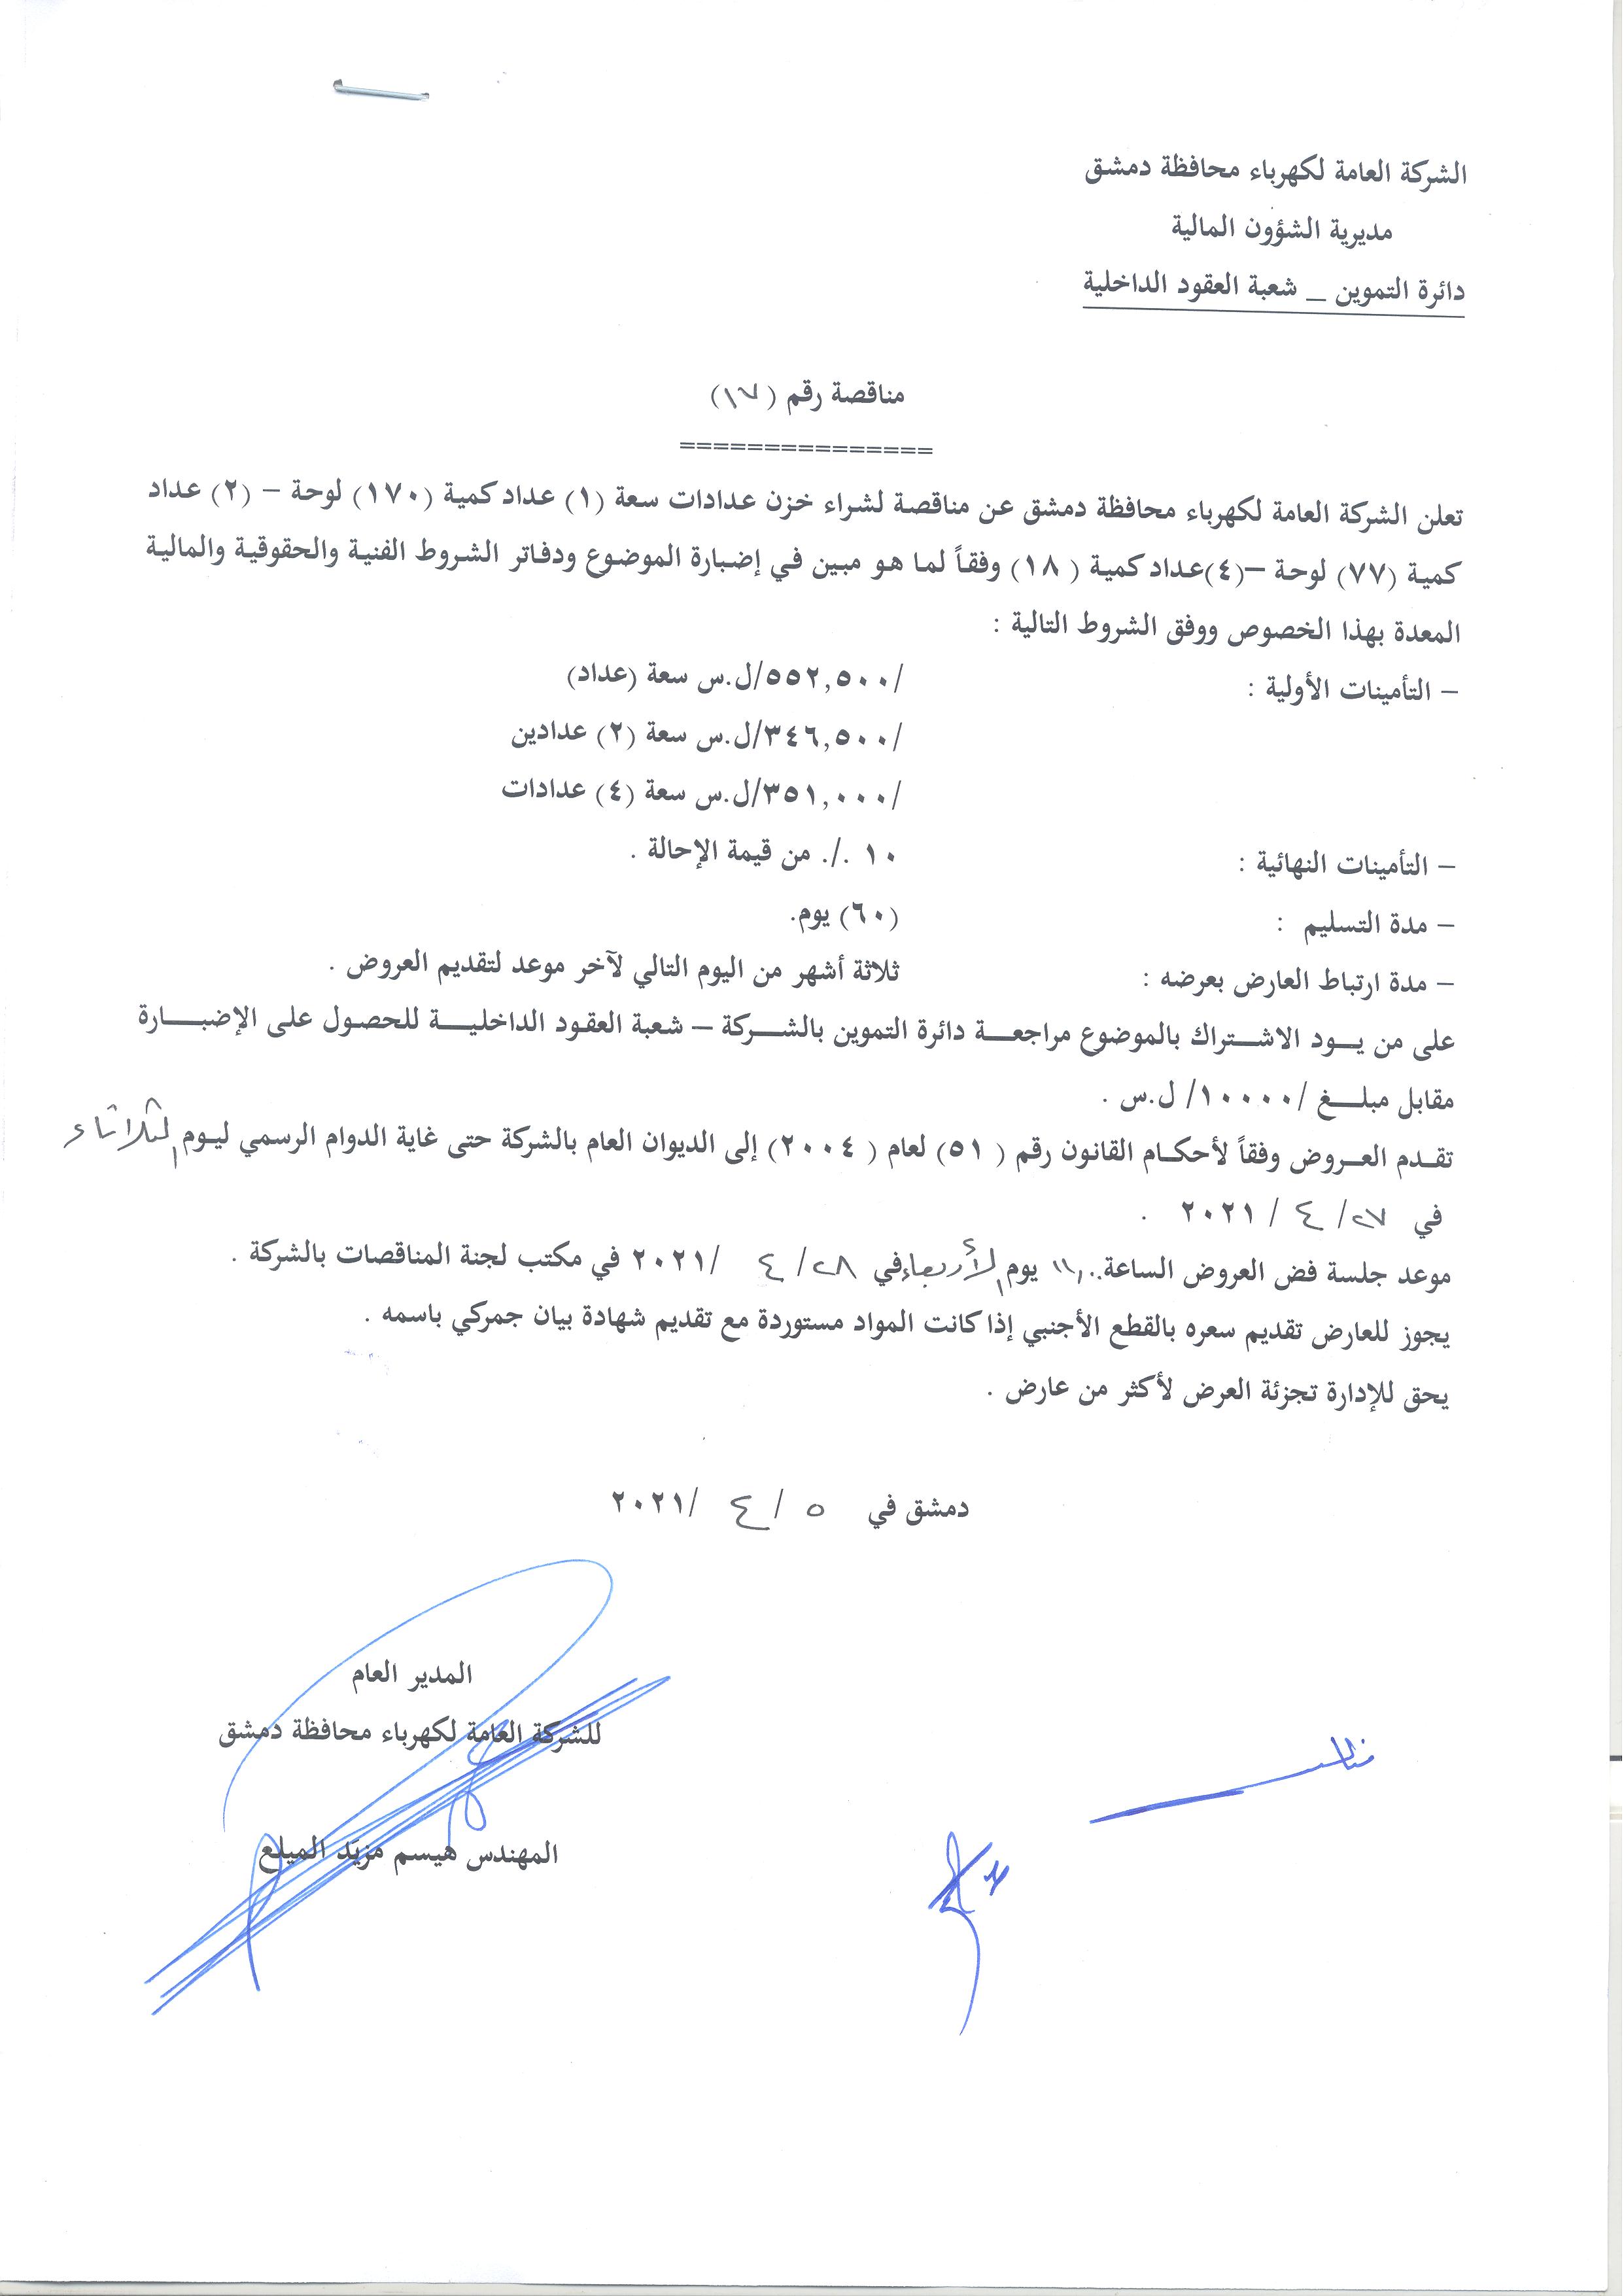 الشركة العامة لكهرباء محافظة دمشق
مديرية الشؤون المالية
دائرة التموين _ شعبة العقود الداخلية
مناقصة رقم (١٧)
===============
تعلن الشركة العامة لكهرباء محافظة دمشق عن مناقصة لشراء خزن عدادات سعة (١) عداد كمية (١٧٠) لوحة – (٢) عداد
كمية (٧٧) لوحة –(٤)عداد كمية ( ١٨) وفقاً لما هو مبين في إضبارة الموضوع ودفاتر الشروط الفنية والحقوقية والمالية
المعدة بهذا الخصوص ووفق الشروط التالية :
– التأمينات الأولية : /٥٥٢,٥٠٠/ل.س سعة (عداد)
/٣٤٦,٥٠٠/ل.س سعة (٢) عدادين
/٣٥١,٠٠٠/ل.س سعة (٤) عدادات
– التأمينات النهائية : ١٠ ./. من قيمة الإحالة .
– مدة التسليم : (٦٠) يوم.
– مدة ارتباط العارض بعرضه : ثلاثة أشهر من اليوم التالي لآخر موعد لتقديم العروض .
على من يـــود الاشـــتراك بالموضوع مراجعـــة دائرة التموين بالشـــركة – شعبة العقود الداخليـــة للحصول على الإضبـــارة
مقابل مبلـــغ /١٠٠٠٠/ ل.س .
تقـدم العـروض وفقاً لأحكـام القانون رقم ( ٥١) لعام ( ٢٠٠٤) إلى الديوان العام بالشركة حتى غاية الدوام الرسمي ليـوم الثلاثاء
في ٢٧/ ٤ / ٢٠٢١ .
موعد جلسة فض العروض الساعة ١١,٠٠ يوم الأربعاء في ٢٨/ ٤ /٢٠٢١ في مكتب لجنة المناقصات بالشركة .
يجوز للعارض تقديم سعره بالقطع الأجنبي إذا كانت المواد مستوردة مع تقديم شهادة بيان جمركي باسمه .
يحق للإدارة تجزئة العرض لأكثر من عارض .
دمشق في ٥ / ٤ /٢٠٢١
المدير العام
للشركة العامة لكهرباء محافظة دمشق
المهندس هيسم مزيَد الميلع